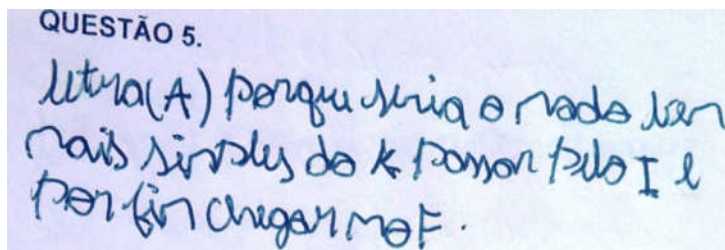 QUESTÃO 5.
letra (A) porque seria o modo bem
mais simples do K passar pelo I e
por fim chegar no F.